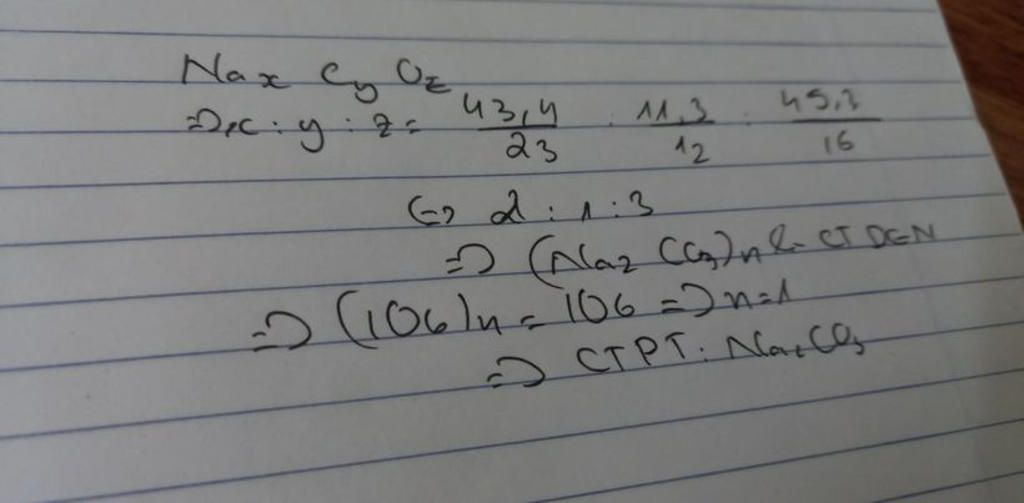 Nax Cy Oz
=> x : y : z = 43,4/23 : 11,3/12 : 45,3/16
<=> 2 : 1 : 3
=> (Na2 CO3)n <- CT DGN
=> (106)n = 106 => n=1
=> CTPT : Na2CO3